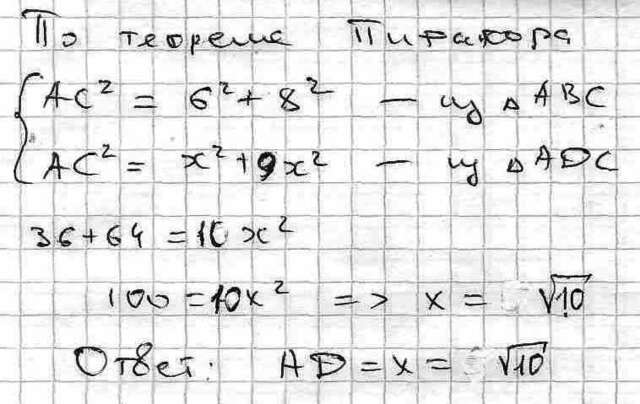 По теореме Пифагора
AC² = 6² + 8² — из △ ABC
AC² = x² + 9x² — из △ ADC
36 + 64 = 10x²
100 = 10x² => x = √10
Ответ: AD = x = √10